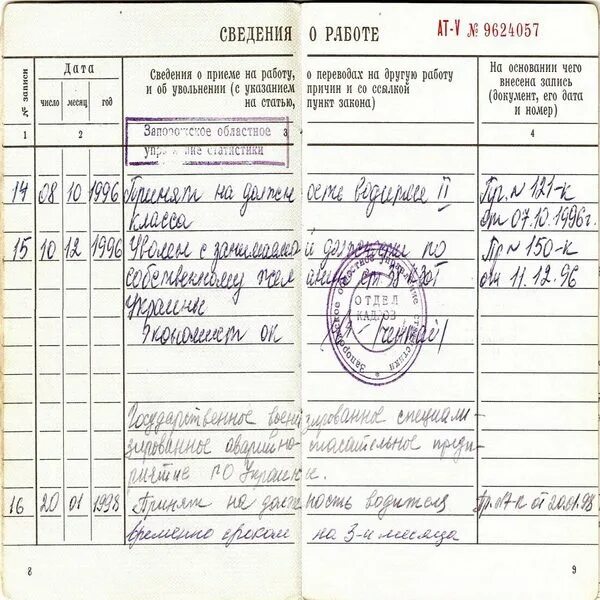 СВЕДЕНИЯ О РАБОТЕ
АТ-V № 9624057
№ записи
Дата
число месяц год
Сведения о приеме на работу, о переводах на другую работу
и об увольнении (с указанием причин и со ссылкой
на статью, пункт закона)
На основании чего
внесена запись
(документ, его дата
и номер)
1 2 3 4
Запорожское областное
управление статистики
14 08 10 1996 Принят на должность водителя II Пр. № 121-к
класса от 07.10.1996г.
15 10 12 1996 Уволен с занимаемой должности по Пр № 150-к
собственному желанию ст. 38 КЗоТ от 11.12.96
Украины
Экономист ОК
Запорожское областное управление статистики
ОТДЕЛ
КАДРОВ
Государственное военизированное специали-
зированное аварийно-спасательное пред-
приятие ГО Украины.
16 20 01 1998 Принят на должность водителя Пр. №7-к от 20.01.98
временно сроком на 3-и месяца
8 9